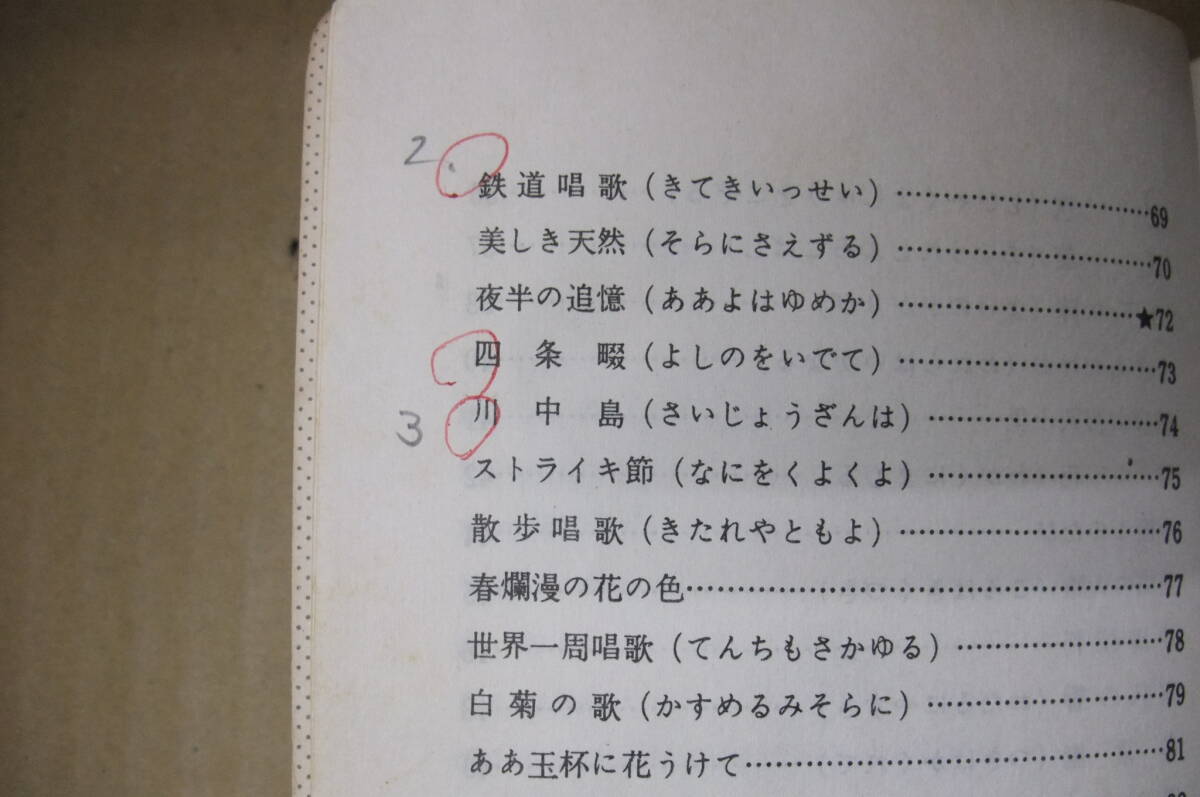 2.
鉄道唱歌（きてきいっせい）………………………69
美しき天然（そらにさえずる）………………………70
夜半の追憶（ああよはゆめか）………………………★72
四条畷（よしのをいでて）………………………73
3
川中島（さいじょうざんは）………………………74
ストライキ節（なにをくよくよ）………………………75
散歩唱歌（きたれやともよ）………………………76
春爛漫の花の色………………………77
世界一周唱歌（てんちもさかゆる）………………………78
白菊の歌（かすめるみそらに）………………………79
ああ玉杯に花うけて………………………81